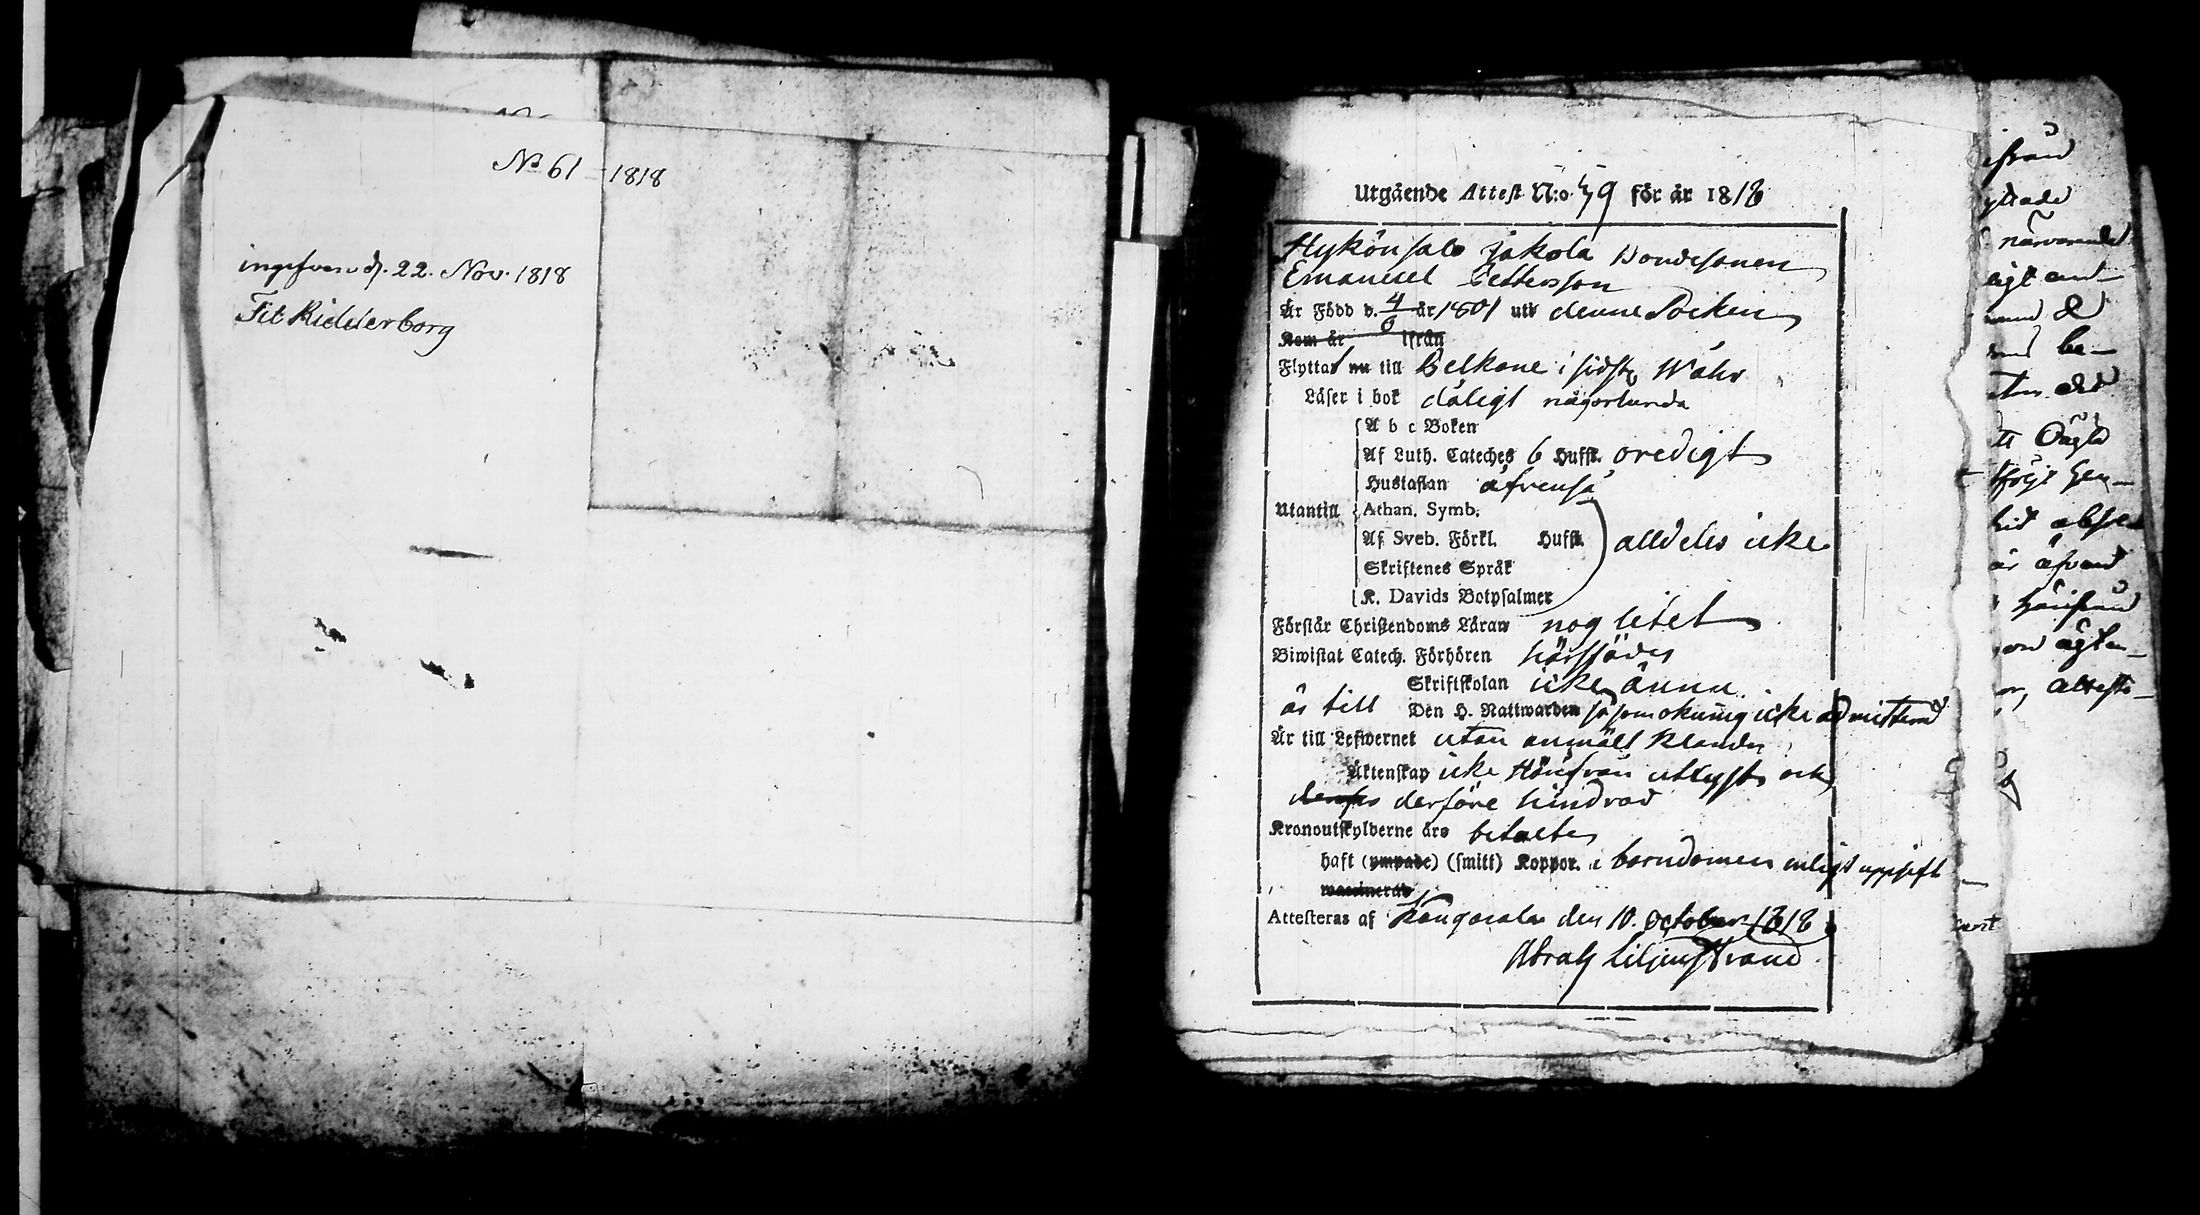 No 61 - 1818
d. 22. Nov. 1818
Fit Ridderborg
Utgående Attest N:o 59 för år 1818
Hykönsalo Jakola Bondesonen
Emanuel Pettersson
Är Född d. 4/6 år 1801 uti denne Socken
Kom år ifrån
Flyttat nu till Pelkane i sidstl. Wåhr
Läser i bok dåligt någorlunda
A b c Boken
Af Luth. Cateches 6 Hufst. oredigt
Hustaflan äfvenså
Utantill Athan. Symb.
Af Sveb. Förkl. Hufst. alldeles icke
Skriftenes Språk
K. Davids Botpsalmer
Förstår Christendoms Läran nog litet
Biwistat Catech. Förhören
Skriftskolan icke ännu
är till Den H. Nattwarden såsom okunig icke admitterad
Är till Lefwernet utan anmält klander
Äktenskap icke härifrån utlyst och
derföre hindrad
Kronoutskylderne äro betalte
haft (ympade) (smitt) Koppor i barndomen enligt uppgift
waccinerad
Attesteras af Kangasala den 10. October 1818
Abrah Liljenstrand
ifrån
närvarande
be-
det
är äfven
attest-